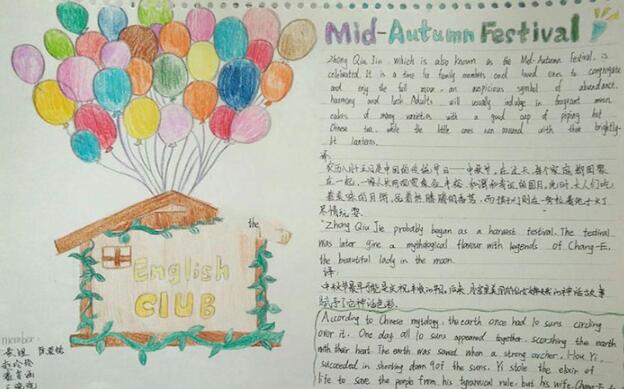 Mid-Autumn Festival
Zhong Qiu Jie, which is also known as the Mid-Autumn Festival, is
celebrated. It is a time for family members and loved ones to congregate
and enjoy the full moon, an auspicious symbol of abundance,
harmony and luck. Adults will usually indulge in fragrant moon
cakes of many varieties with a good cup of piping hot
Chinese tea, while the little ones run around with their brightly-
lit lanterns.
译:
农历八月十五日是中国的传统节日——中秋节。在这天,每个家庭都团聚
在一起,一家人共同观赏象征丰裕、和谐和幸运的圆月。此时,大人们吃
着美味的月饼,品着热腾腾的香茗,而孩子们则在一旁
尽情玩耍.
"Zhong Qiu Jie probably began as a harvest festival. The festival
was later give a mythological flavour with legends of Chang-E,
the beautiful lady in the moon.
译:
中秋节最早可能是庆祝丰收的节日。后来,月宫里美丽的仙女嫦娥的神话故事
赋予了它神话色彩.
According to Chinese mytology, the earth once had 10 suns circling
over it. One day, all 10 suns appeared together, scorching the earth
with their heat. The earth was saved when a strong archer, Hou Yi,
succeeded in shooting down 9 of the suns. Yi stole the elixir of
life to save the people from his tyrannical rule, but his wife, Chang-E
the
English
CLUB
member: